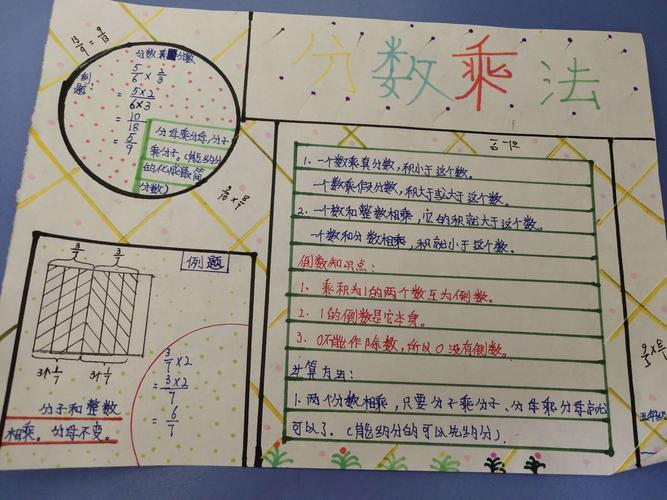 分数乘法
13/9 = 9/13
分数乘分数
例题:
5/6 × 2/3
= 5×2/6×3
= 10/18
= 5/9
分母乘分母,分子
乘分子。(能约分
的化成最简
分数)
3/10 ×
1、一个数乘真分数,积小于这个数。
一个数乘假分数,积大于或大于这个数。
2、一个数和整数相乘,它的积就大于这个数。
一个数和分数相乘,积就小于这个数。
倒数知识点:
1、乘积为1的两个数互为倒数。
2、1的倒数是它本身。
3、0不能作除数,所以0没有倒数。
计算方法:
1、两个分数相乘,只要分子乘分子、分母乘分母就
可以了。(能约分的可以先约分)。
例题
3/7 3/7
3个1/7 3个1/7
3/7 ×2
= 3×2/7
= 6/7
分子和整数
相乘,分母不变。